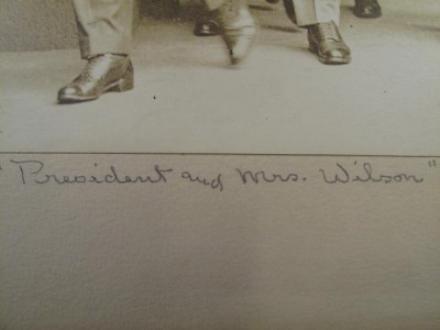 "President and Mrs. Wilson"